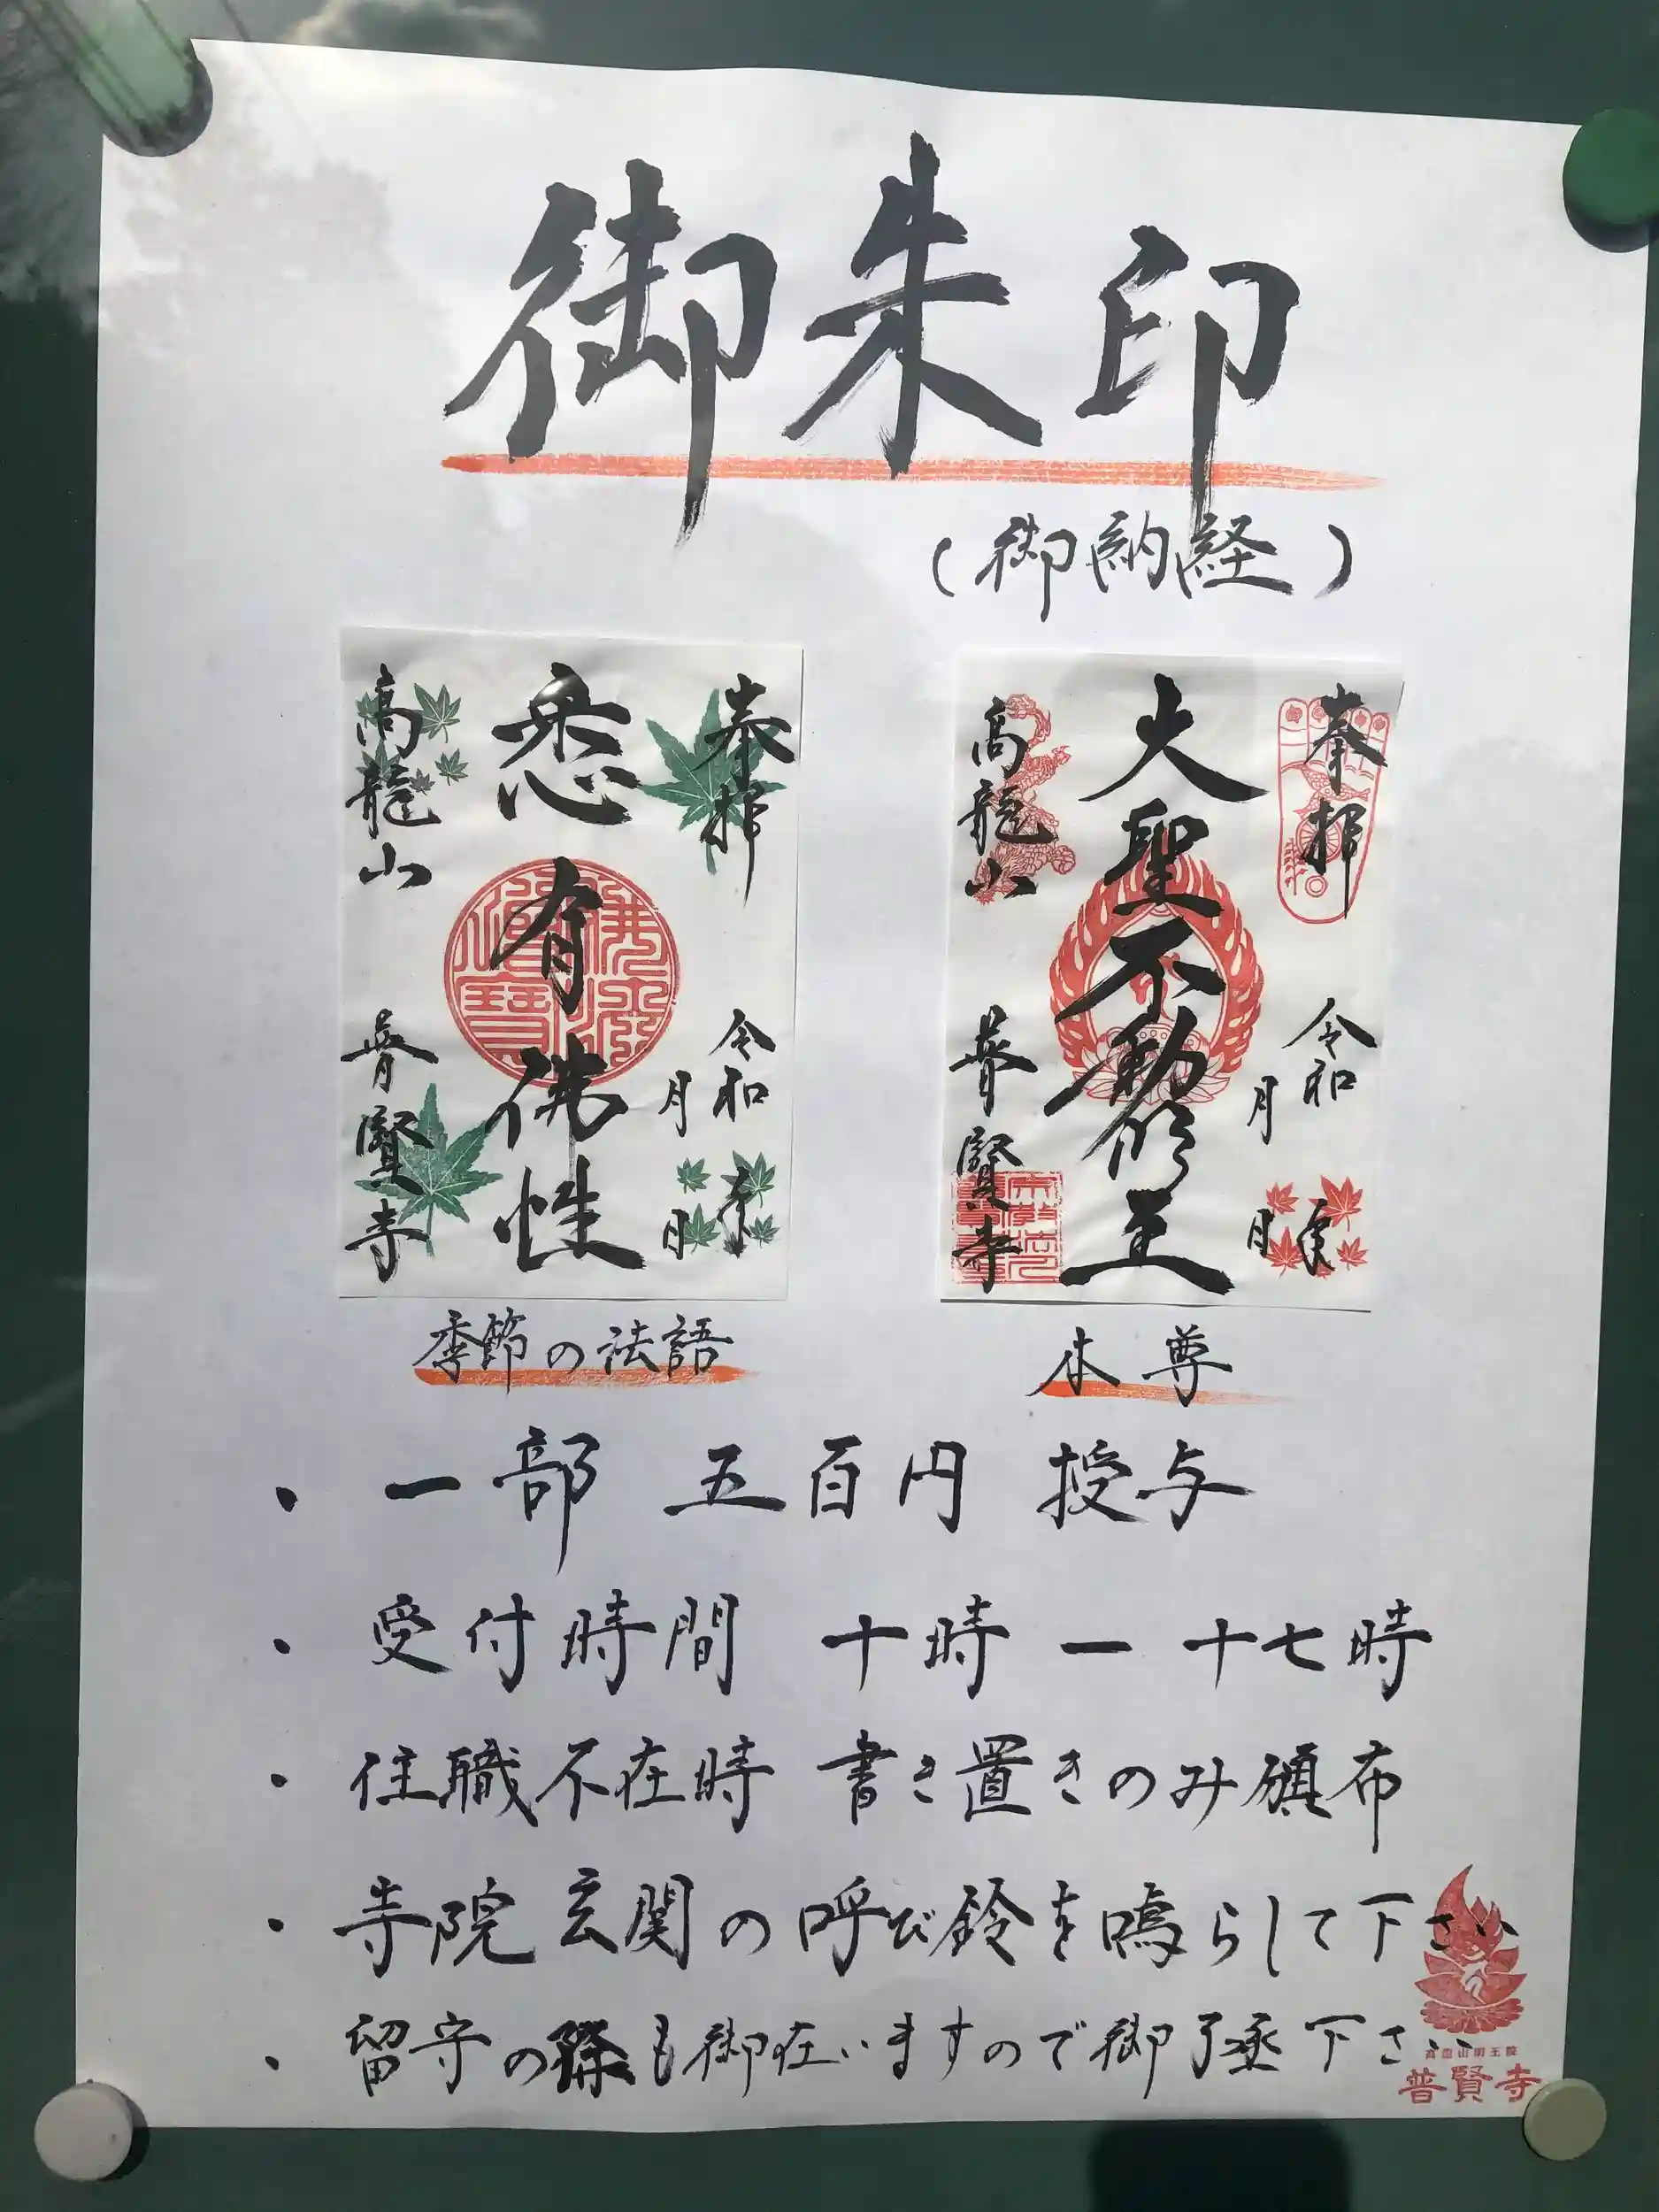 御朱印
(御納経)
奉拝
令和 年
月 日
大聖不動明王
高龍山
普賢寺
本尊
奉拝
令和 年
月 日
悉有佛性
高龍山
普賢寺
季節の法語
・一部 五百円 授与
・受付時間 十時ー十七時
・住職不在時 書き置きのみ頒布
・寺院玄関の呼び鈴を鳴らして下さい
・留守の際も御在いますので御了承下さい
高龍山明王院
普賢寺